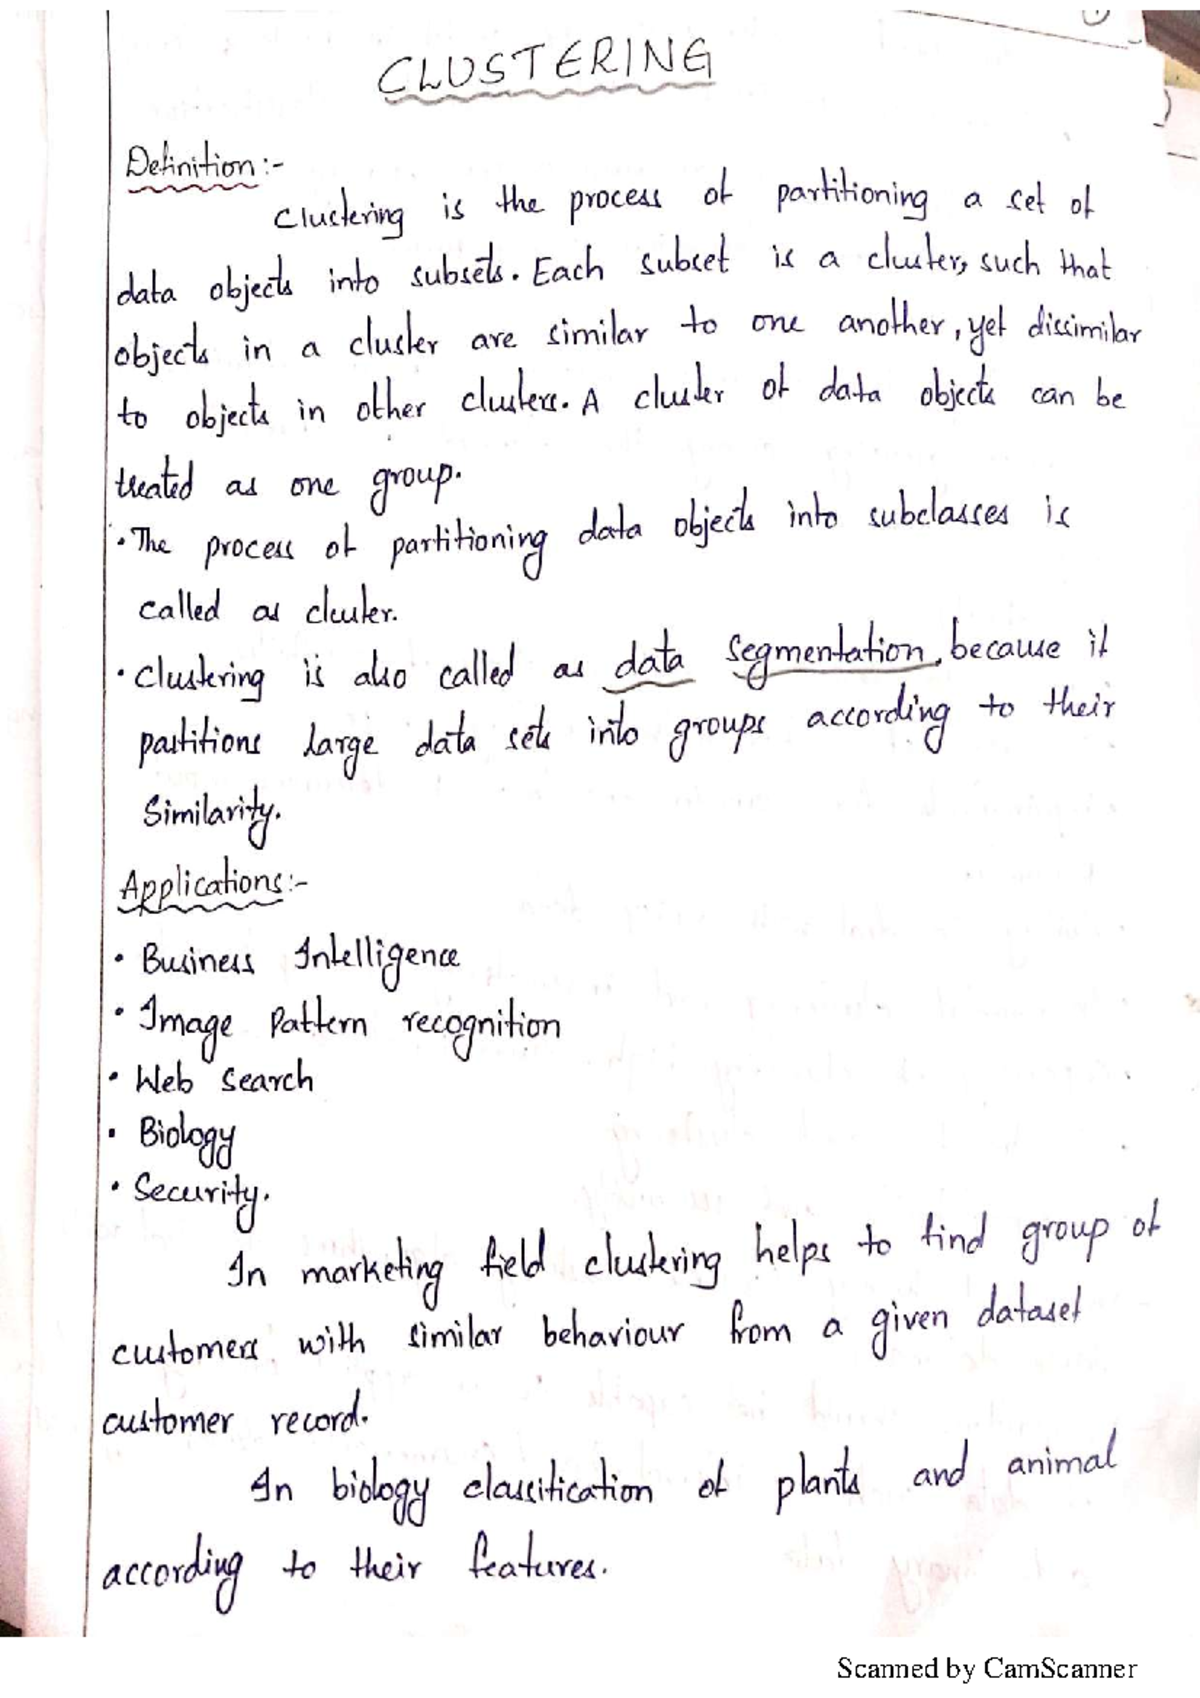 CLUSTERING
Definition:-
Clustering is the process of partitioning a set of
data objects into subsets. Each subset is a cluster, such that
objects in a cluster are similar to one another, yet dissimilar
to objects in other clusters. A cluster of data objects can be
treated as one group.
• The process of partitioning data objects into subclasses is
called as cluster.
• Clustering is also called as data segmentation, because it
partitions large data sets into groups according to their
Similarity.
Applications:-
• Business Intelligence
• Image Pattern recognition
• Web search
• Biology
• Security.
In marketing field clustering helps to find group of
customers with similar behaviour from a given dataset
customer record.
In biology classification of plants and animal
according to their features.
Scanned by CamScanner